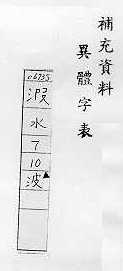 補充資料
異體字表
水
7
10
波